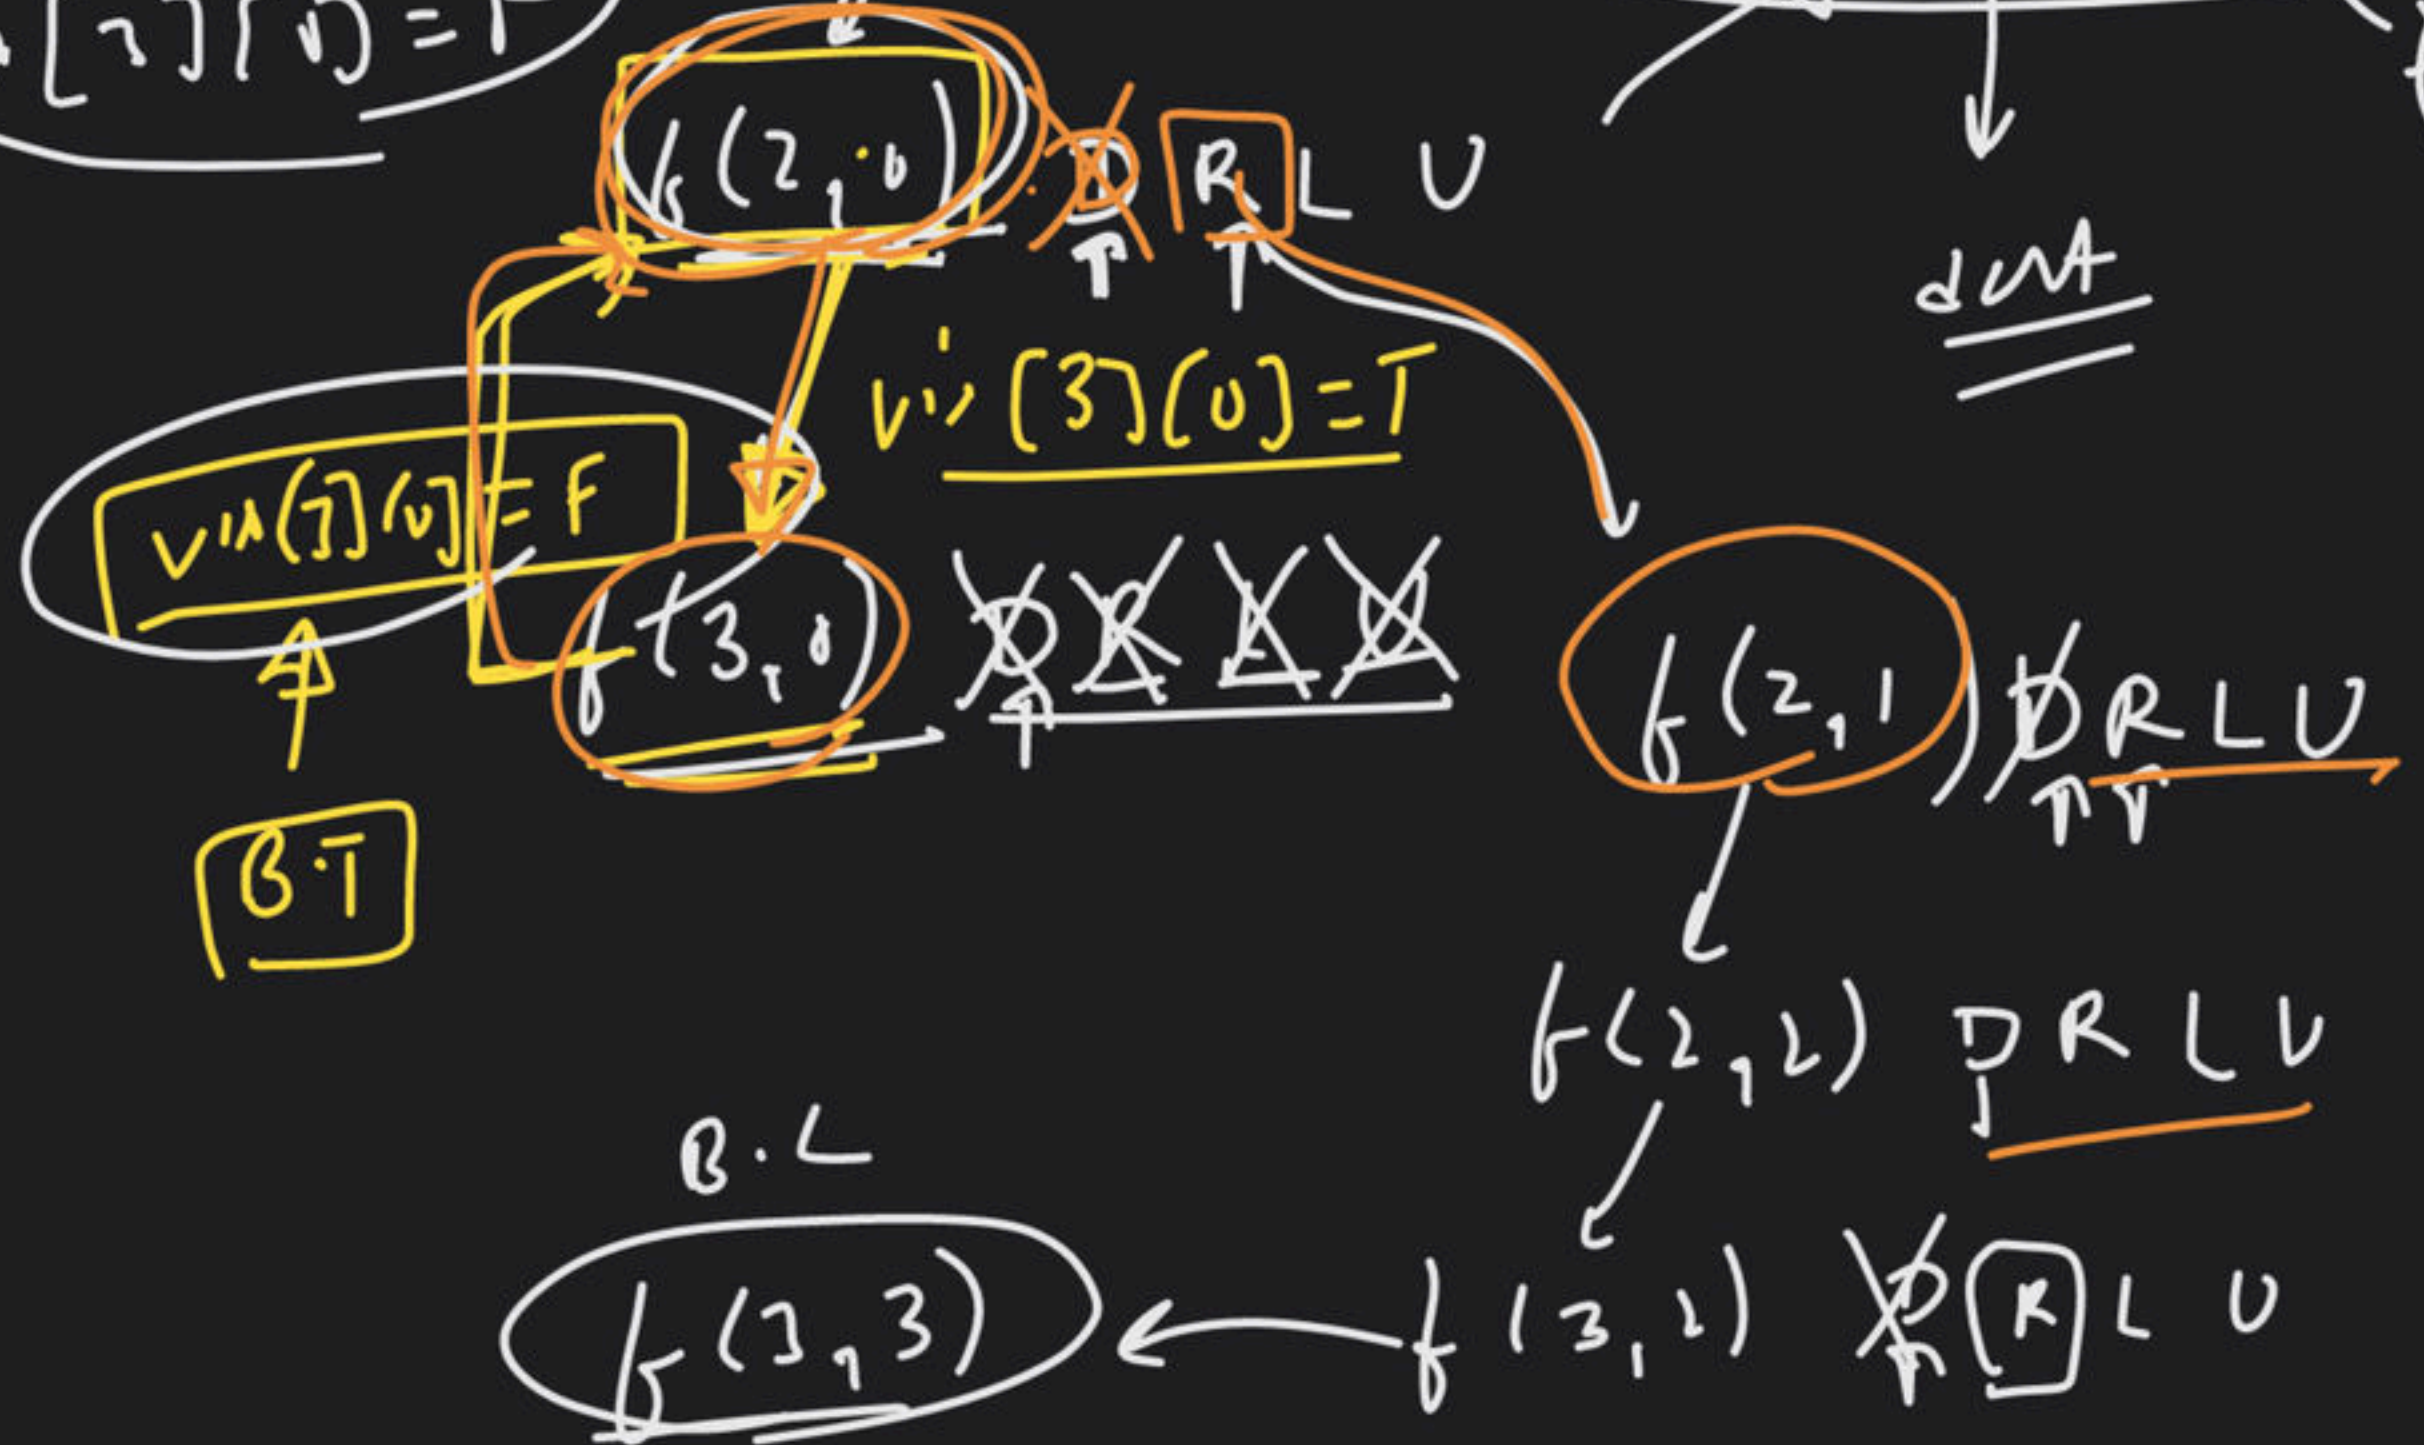 [3][0] = F
f(2,0) D R L U
dest
vis[3][0] = T
vis[3][0] = F
f(3,0) D R L U
f(2,1) D R L U
B.T
f(2,2) D R L U
B.L
f(3,3)
f(3,2) D R L U